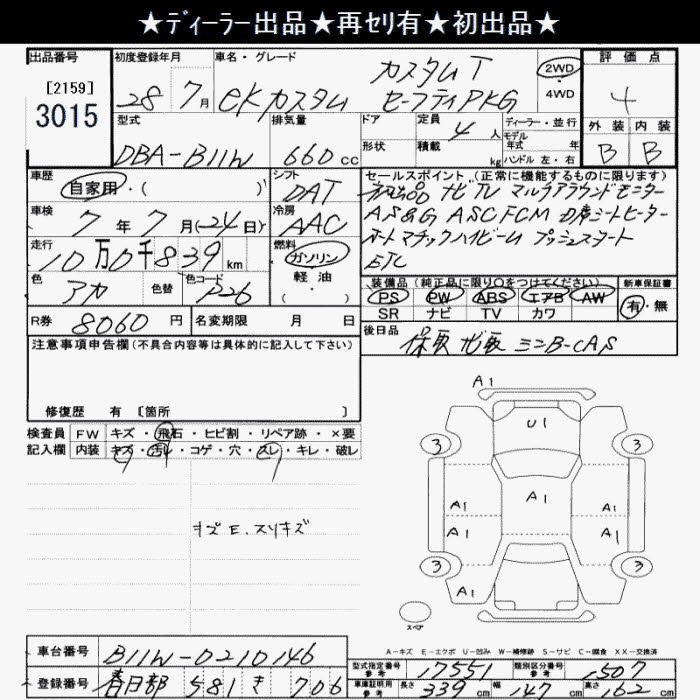 ★ﾃﾞｨｰﾗｰ出品★再ｾﾘ有★初出品★
出品番号 初度登録年月 車名・グレード 評価点
[2159]
3015
28 7月 eKカスタム カスタムT セーフティPKG 2WD・4WD 4
型式 排気量 ドア 定員 4人 ディーラー・並行 外装 内装
形状 積載 kg モデル年式 年 ハンドル 左・右
DBA-B11W 660cc B B
車歴 自家用・( ) シフト DAT
セールスポイント(正常に機能するものに限ります)
ナビTV マルチアラウンドモニター
車検 7年7月(24日) 冷房 AAC
AS&G ASC FCM D席シートヒーター
オートマチックハイビーム プッシュスタート
ETC
走行 10万0千839km 燃料 ガソリン・軽油
色 アカ 色替 色コード P26
装備品(純正品に限り○をつけてください) 新車保証書
PS PW ABS エアB AW 有・無
SR ナビ TV カワ
R券 8060円 名変期限 月 日
後日品
保取 ナビ取
注意事項申告欄(不具合内容等は具体的に記入して下さい)
修復歴 有 [箇所 ]
検査員 FW キズ・飛石・ヒビ割・リペア跡・×要
記入欄 内装 キズ・汚レ・コゲ・穴・スレ・キレ・破レ
キズE.スリキズ
A1
U1
3 3
A1 A1 A1
A1 A1
3 3
A1
スペア
A-キズ E-エクボ U-凹み W-補修跡 S-サビ C-腐食 XX-交換済
車台番号 B11W-0210146
型式指定番号 参考 17551 類別区分番号 参考 1507
登録番号 春日部 581 き 706
車庫証明用 参考 長さ 339cm 幅 147cm 高さ 162cm